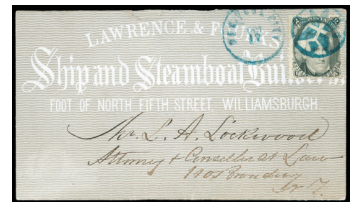 LAWRENCE &
Ship and Steamboat Builders
FOOT OF NORTH FIFTH STREET, WILLIAMSBURGH
L. A. Lockwood
Attorney & Counsellor at Law
Broadway
N. Y.